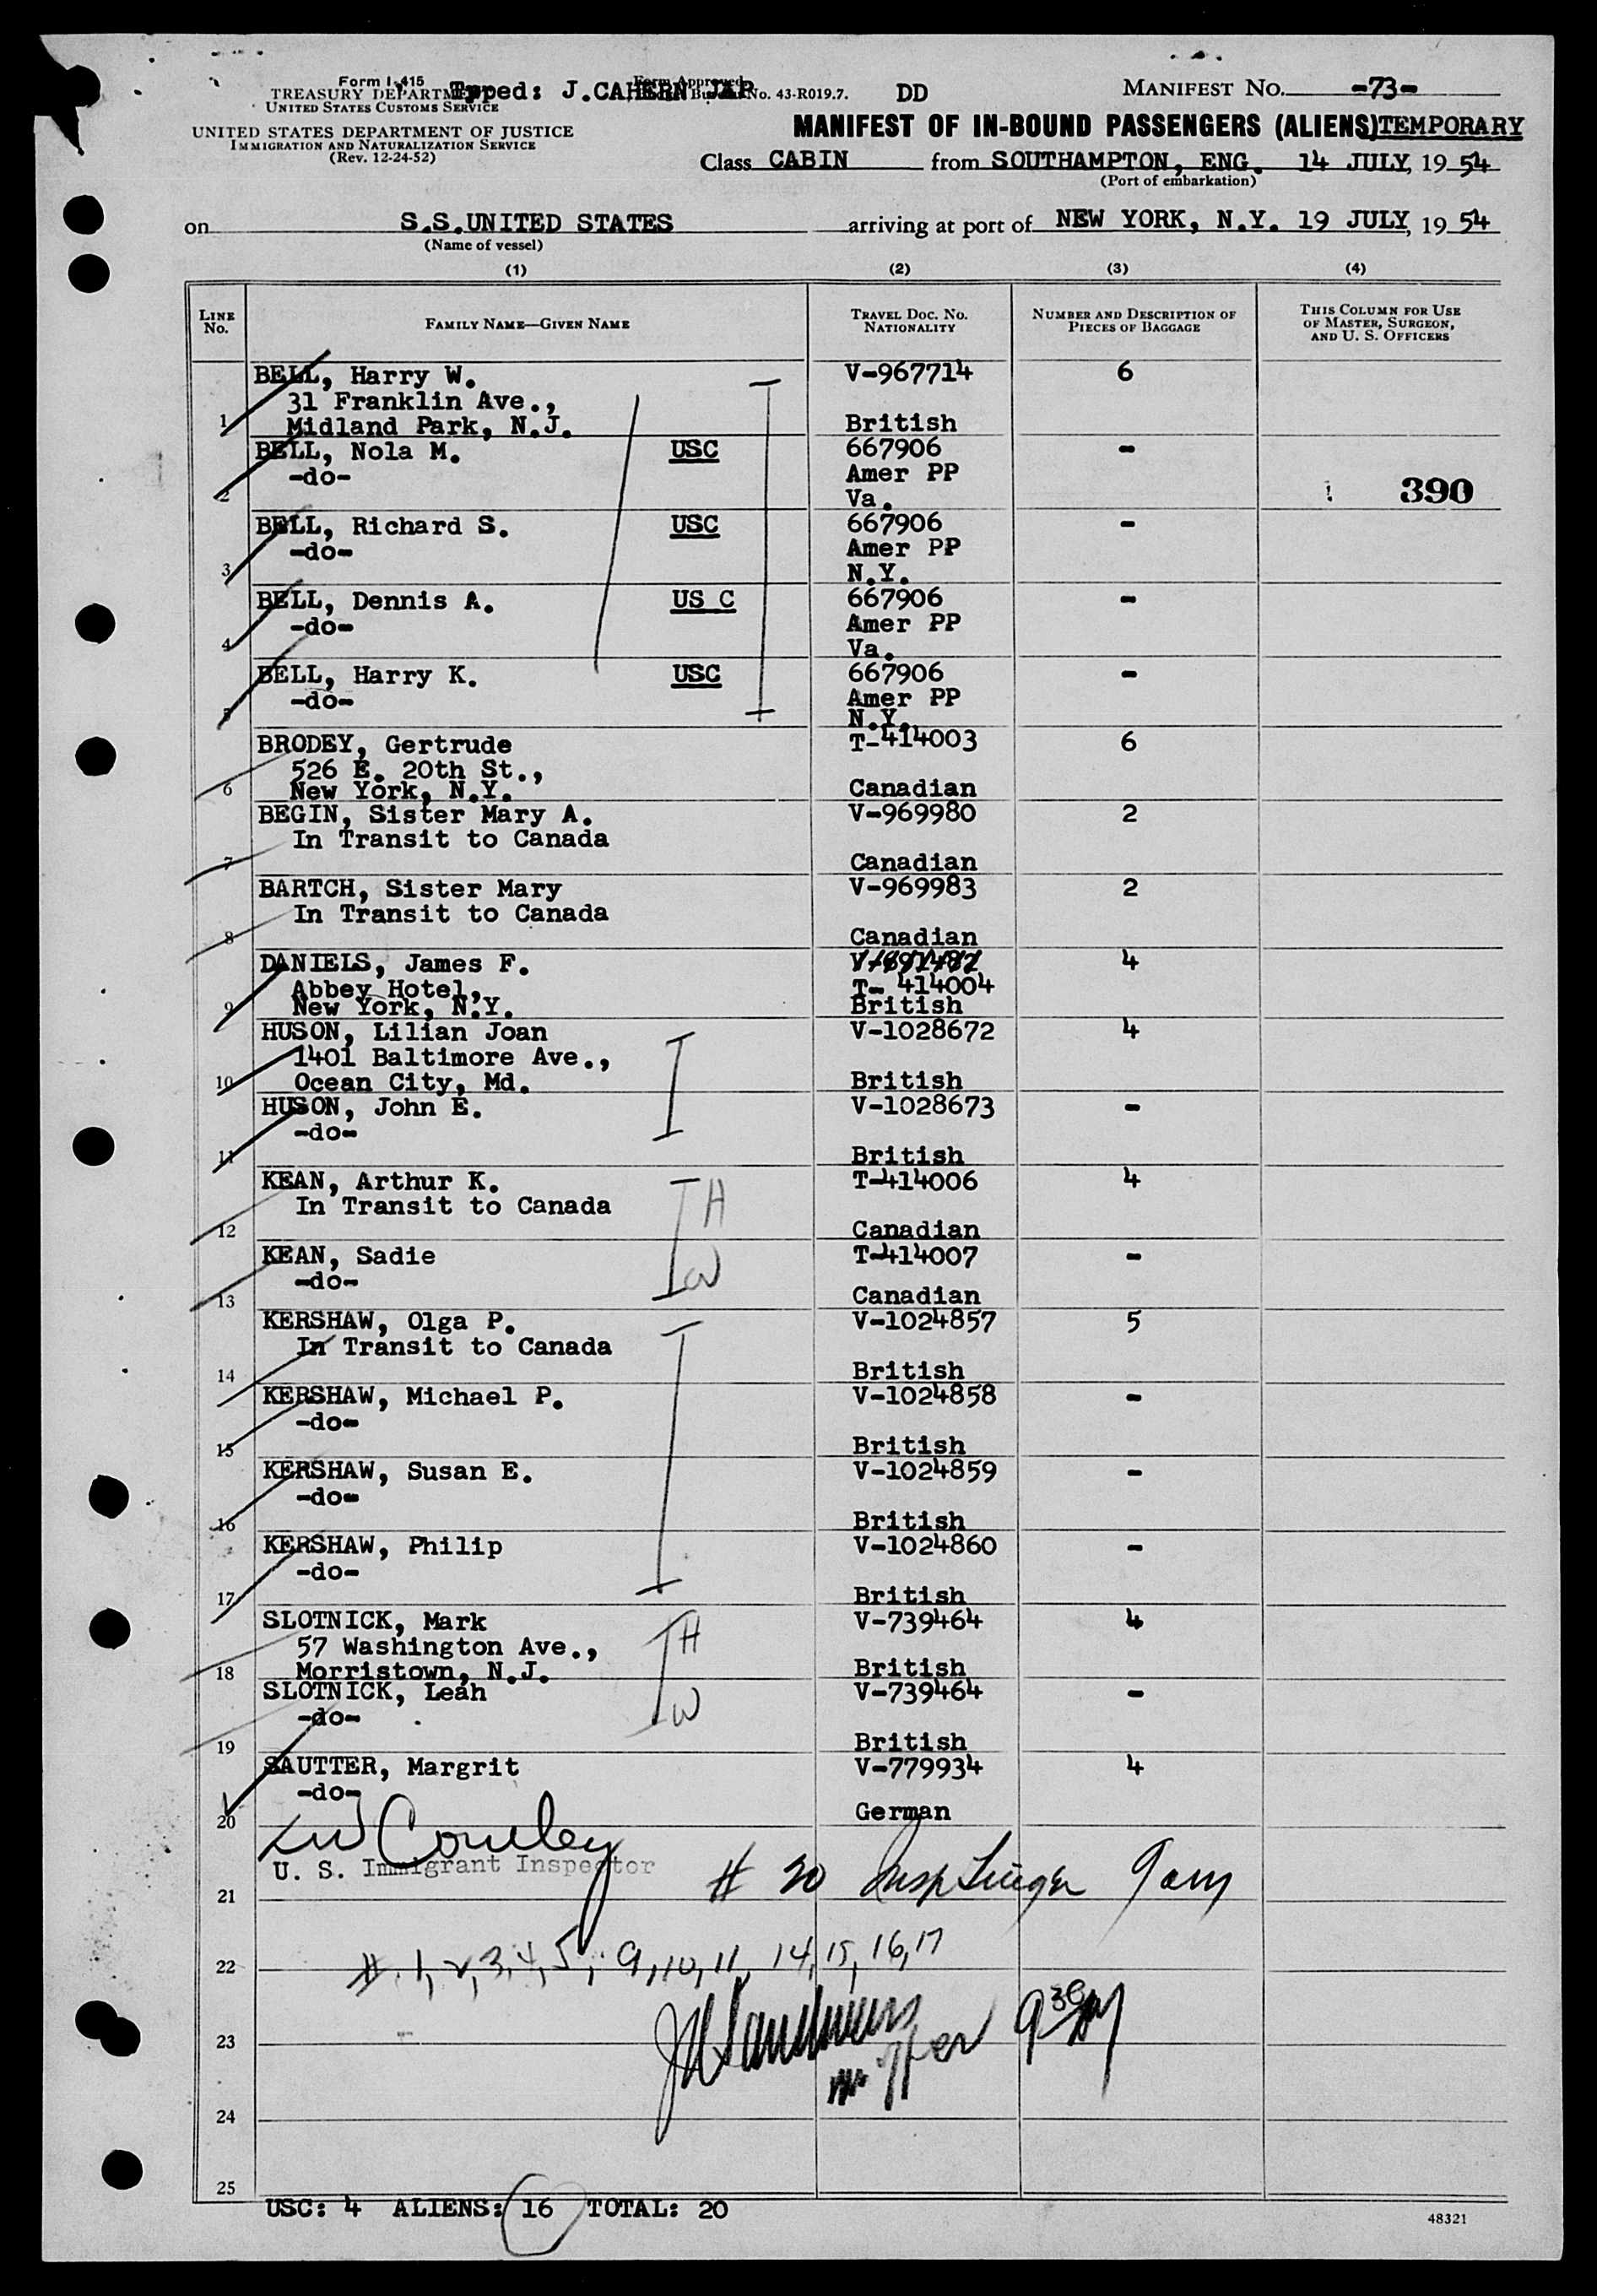 Form I-415
TREASURY DEPARTMENT Typed: J.CAHERN JAP No. 43-R019.7. DD MANIFEST NO. -73-
UNITED STATES CUSTOMS SERVICE
UNITED STATES DEPARTMENT OF JUSTICE
IMMIGRATION AND NATURALIZATION SERVICE
(Rev. 12-24-52)
Form Approved
MANIFEST OF IN-BOUND PASSENGERS (ALIENS)TEMPORARY
Class CABIN from SOUTHAMPTON, ENG. 14 JULY, 1954
(Port of embarkation)
on S.S.UNITED STATES arriving at port of NEW YORK, N.Y. 19 JULY, 1954
(Name of vessel)
(1) (2) (3) (4)
LINE No. FAMILY NAME—GIVEN NAME TRAVEL DOC. NO. NATIONALITY NUMBER AND DESCRIPTION OF PIECES OF BAGGAGE THIS COLUMN FOR USE OF MASTER, SURGEON, AND U. S. OFFICERS
BELL, Harry W. V-967714 6
31 Franklin Ave.,
1 Midland Park, N.J. British
BELL, Nola M. USC 667906 -
-do- Amer PP
2 Va. 390
BELL, Richard S. USC 667906 -
-do- Amer PP
3 N.Y.
BELL, Dennis A. US C 667906 -
-do- Amer PP
4 Va.
BELL, Harry K. USC 667906 -
-do- Amer PP
5 N.Y.
BRODEY, Gertrude T-414003 6
526 E. 20th St.,
6 New York, N.Y. Canadian
BEGIN, Sister Mary A. V-969980 2
In Transit to Canada
7 Canadian
BARTCH, Sister Mary V-969983 2
In Transit to Canada
8 Canadian
DANIELS, James F. 4
Abbey Hotel, T- 414004
9 New York, N.Y. British
HUSON, Lilian Joan V-1028672 4
1401 Baltimore Ave.,
10 Ocean City, Md. British
HUSON, John E. V-1028673 -
-do-
11 British
KEAN, Arthur K. H T-414006 4
In Transit to Canada
12 Canadian
KEAN, Sadie W T-414007 -
-do-
13 Canadian
KERSHAW, Olga P. V-1024857 5
In Transit to Canada
14 British
KERSHAW, Michael P. V-1024858 -
-do-
15 British
KERSHAW, Susan E. V-1024859 -
-do-
16 British
KERSHAW, Philip V-1024860 -
-do-
17 British
SLOTNICK, Mark H V-739464 4
57 Washington Ave.,
18 Morristown, N.J. British
SLOTNICK, Leah W V-739464 -
-do-
19 British
SAUTTER, Margrit V-779934 4
-do-
20 German
Cowley
U. S. Immigrant Inspector
21 # 20 Insp 9 am
22 # 1, 2, 3, 4, 5, 9, 10, 11, 14, 15, 16, 17
23 9 30
24
25
USC: 4 ALIENS: 16 TOTAL: 20
48321